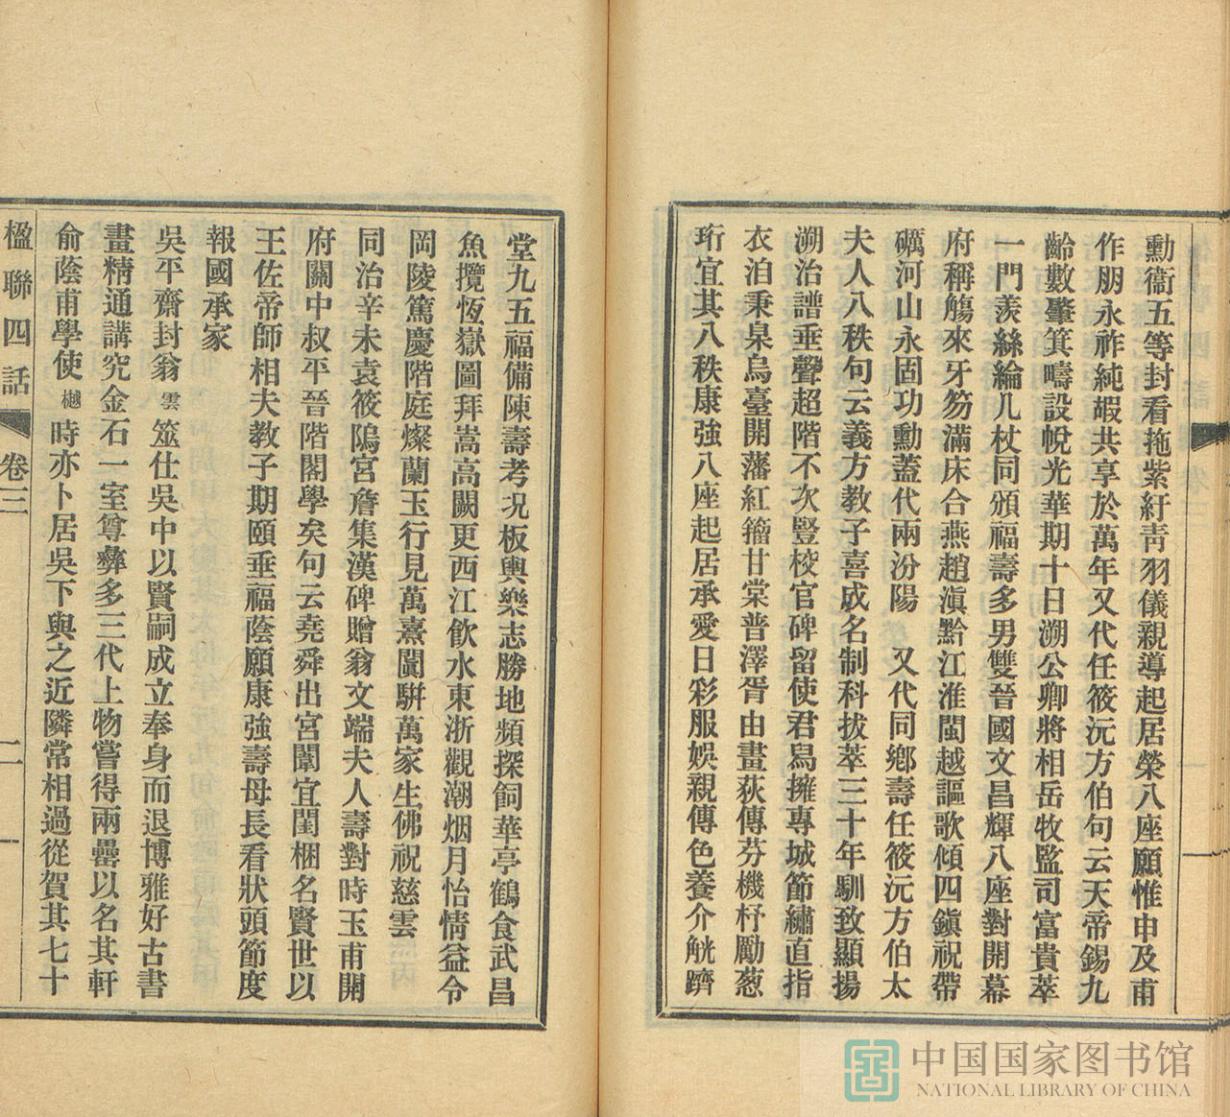 勳衞五等封看拖紫紆靑羽儀親導起居榮八座願惟申及甫
作朋永祚純嘏共享於萬年又代任筱沅方伯句云天帝錫九
齡數肇箕疇設帨光華期十日溯公卿將相岳牧監司富貴萃
一門羨絲綸几杖同頒福壽多男雙晉國文昌輝八座對開幕
府稱觴來牙笏滿床合燕趙滇黔江淮閩越謳歌傾四鎭祝帶
礪河山永固功勳蓋代兩汾陽　又代同鄕壽任筱沅方伯太
夫人八秩句云義方教子喜成名制科拔萃三十年馴致顯揚
溯治譜垂聲超階不次豎校官碑留使君舄擁專城節繡直指
衣洎秉臬烏臺開藩紅籀甘棠普澤胥由畫荻傳芬機杼勵葱
珩宜其八秩康強八座起居承愛日彩服娛親傳色養介觥躋
堂九五福備陳壽考況板輿樂志勝地頻探飼華亭鶴食武昌
魚攬恆嶽圖拜嵩高闕更西江飮水東浙觀潮烟月怡情益令
岡陵篤慶階庭燦蘭玉行見萬熹闐騈萬家生佛祝慈雲
同治辛未袁筱鴭宮詹集漢碑贈翁文端夫人壽對時玉甫開
府關中叔平晉階閣學矣句云堯舜出宮闈宜閨梱名賢世以
王佐帝師相夫教子期頤垂福蔭願康強壽母長看狀頭節度
報國承家
吳平齋封翁雲筮仕吳中以賢嗣成立奉身而退博雅好古書
畫精通講究金石一室尊彝多三代上物嘗得兩罍以名其軒
俞蔭甫學使樾時亦卜居吳下與之近隣常相過從賀其七十
楹聯四話　卷三　二一
中国国家图书馆
NATIONAL LIBRARY OF CHINA